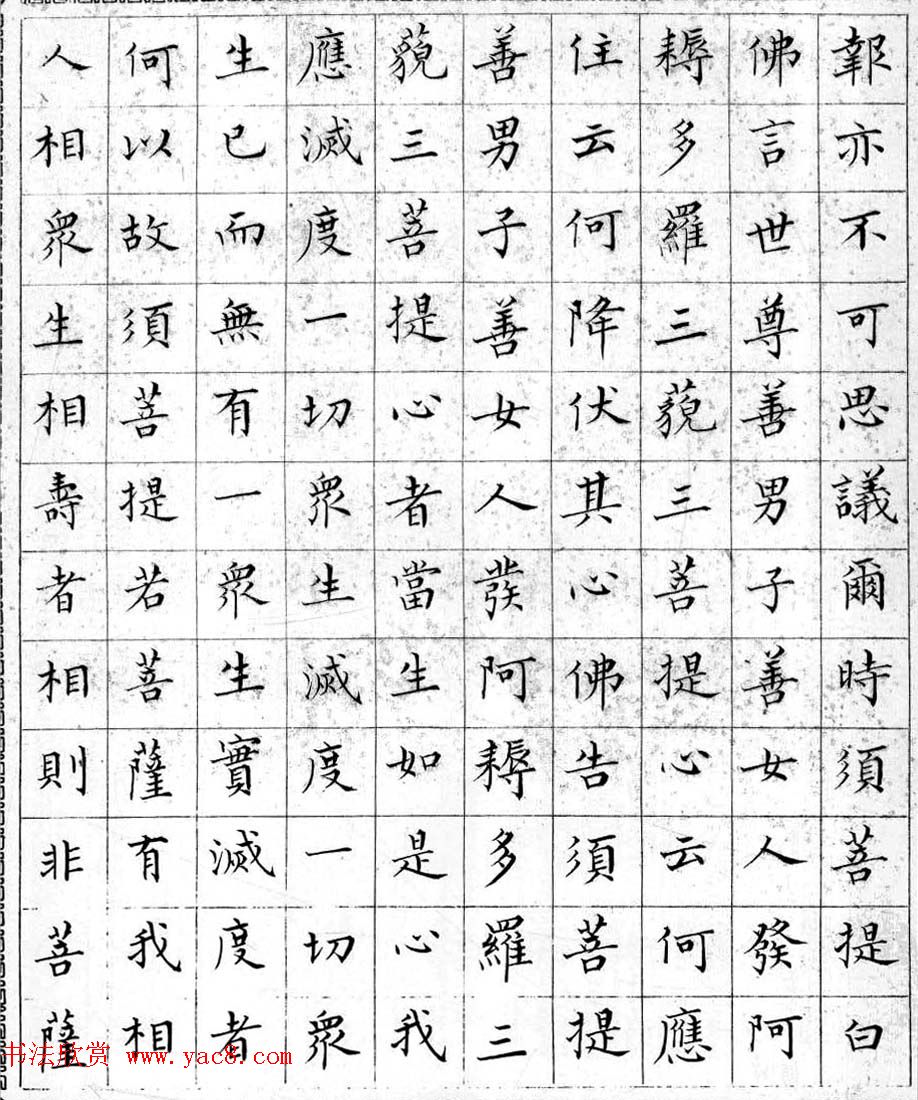 報亦不可思議爾時須菩提白
佛言世尊善男子善女人發阿
耨多羅三藐三菩提心云何應
住云何降伏其心佛告須菩提
善男子善女人發阿耨多羅三
藐三菩提心者當生如是心我
應滅度一切衆生滅度一切衆
生已而無有一衆生實滅度者
何以故須菩提若菩薩有我相
人相衆生相壽者相則非菩薩
书法欣赏 www.yac8.com